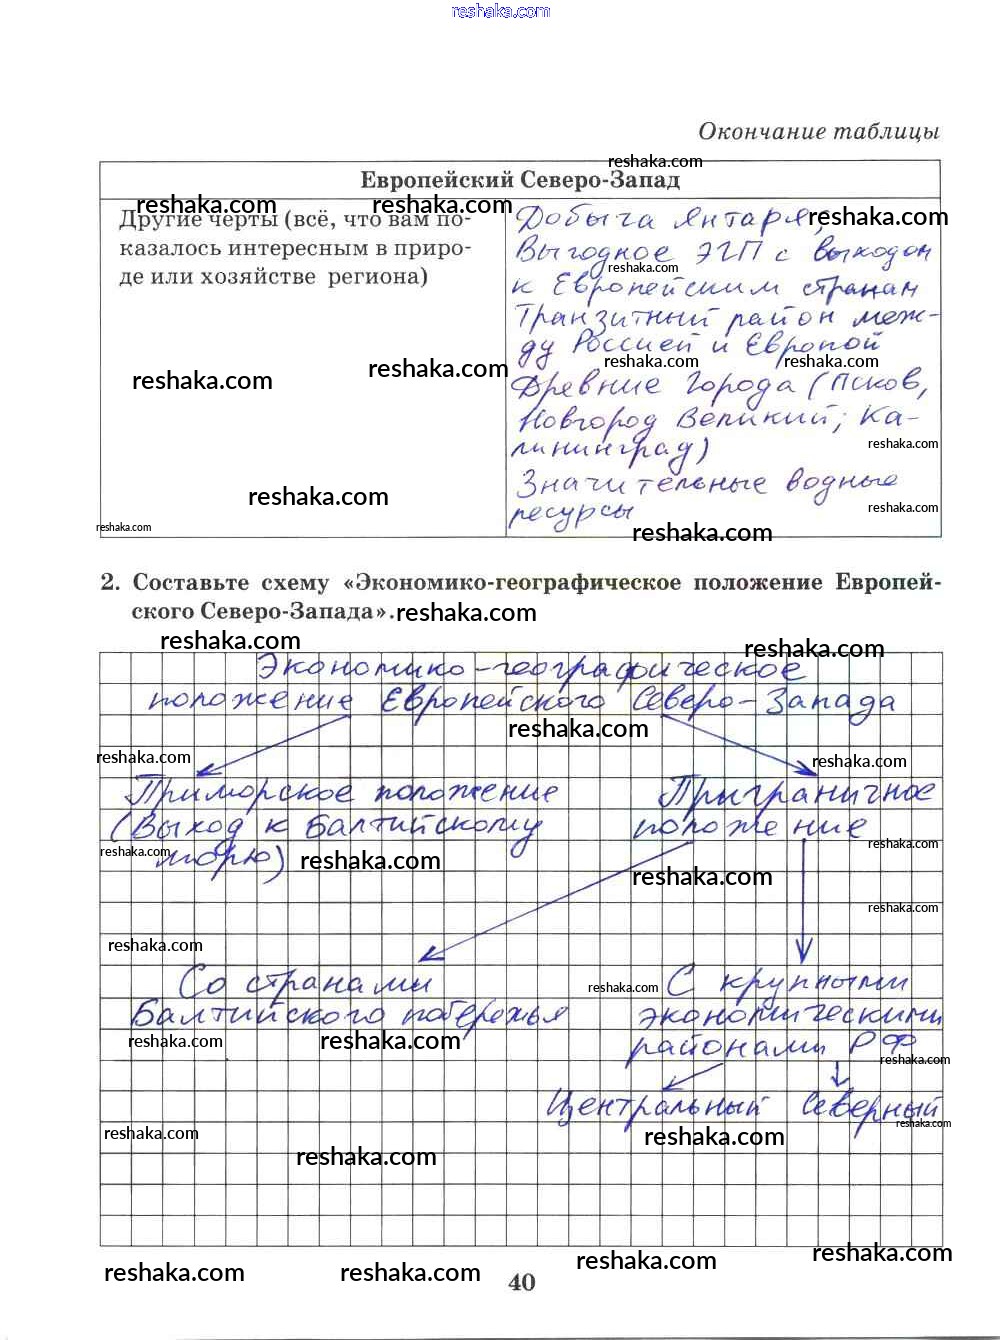 reshaka.com
Окончание таблицы
reshaka.com
Европейский Северо-Запад
reshaka.com reshaka.com
Другие черты (всё, что вам по-
казалось интересным в приро-
де или хозяйстве региона)
Добыча янтаря, reshaka.com
Выгодное ЭГП с выходом
reshaka.com
к Европейским странам
Транзитный район меж-
ду Россией и Европой
reshaka.com reshaka.com reshaka.com reshaka.com
Древние города (Псков,
Новгород Великий, Ка-
лининград) reshaka.com
Значительные водные
reshaka.com reshaka.com
ресурсы
reshaka.com reshaka.com
2. Составьте схему «Экономико-географическое положение Европей-
ского Северо-Запада». reshaka.com
reshaka.com reshaka.com
Экономико-географическое
положение Европейского Северо-Запада
reshaka.com
reshaka.com reshaka.com
Приморское положение
(Выход к Балтийскому
морю)
Приграничное
положение
reshaka.com reshaka.com reshaka.com
reshaka.com
reshaka.com
reshaka.com
Со странами
Балтийского побережья
reshaka.com
С крупными
экономическими
районами РФ
reshaka.com reshaka.com reshaka.com
Центральный Северный
reshaka.com
reshaka.com reshaka.com
reshaka.com
reshaka.com reshaka.com reshaka.com reshaka.com
40